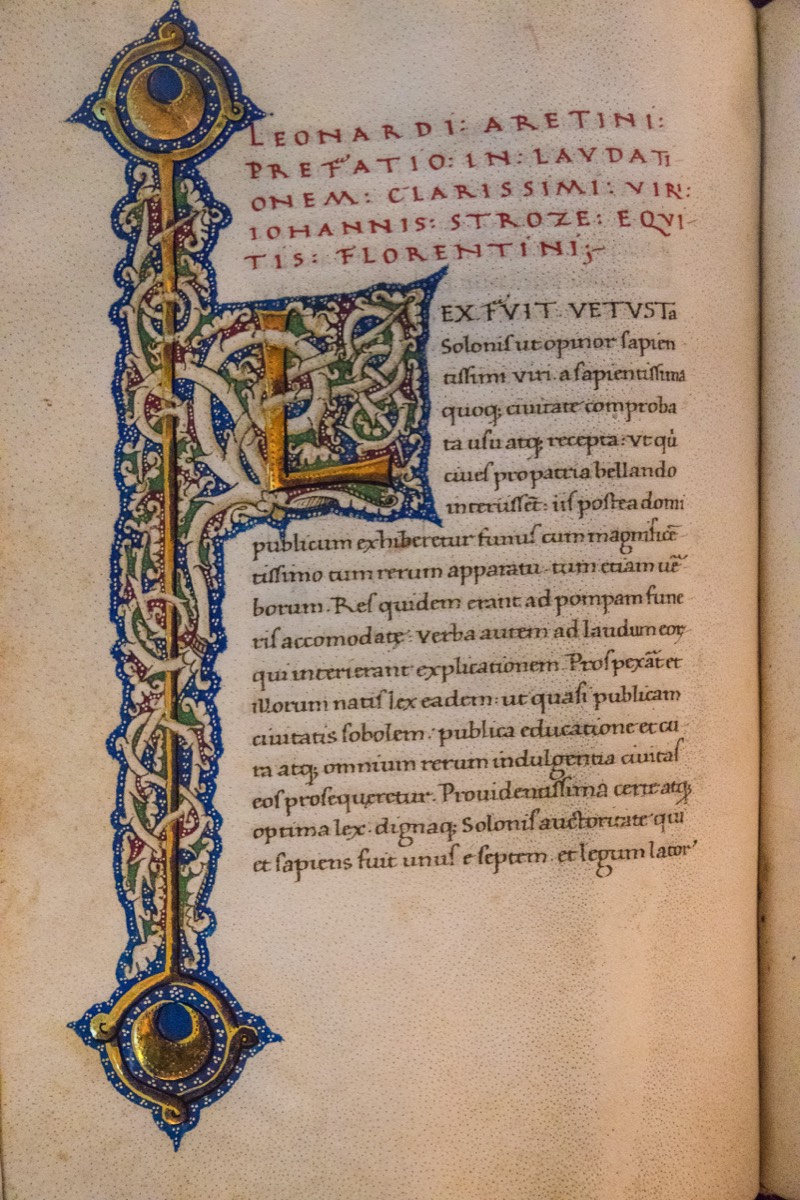 LEONARDI: ARETINI:
PREFATIO: IN: LAVDATI
ONEM: CLARISSIMI: VIRI:
IOHANNIS: STROZE: EQVI-
TIS: FLORENTINI;-
LEX FVIT VETUSTa
Soloniſ ut opinor ſapien
tiſſimi viri . a ſapientiſſima
quoq; ciuitate comproba
ta uſu atq; recepta: vt qͥ
ciueſ pro patria bellando
interiiſſēt: iiſ poſtea domi
publicum exhiberetur funuſ cum magnificē
tiſſimo tum rerum apparatu. tum etiam uē
borum. Reſ quidem erant ad pompam fune
riſ accomodatę: verba autem ad laudum eoꝝ
qui interierant explicationem. Proſpexāt et
illorum natiſ lex eadem: ut quaſi publicam
ciuitatis ſobolem: publica educatione et cu
ra atq; omnium rerum indulgentia ciuitaſ
eoſ proſequeretur. Prouidentiſſima certe atq;
optima lex. dignaq; Soloniſ auctoritate qui
et ſapiens fuit unuſ e ſeptem. et legum lator